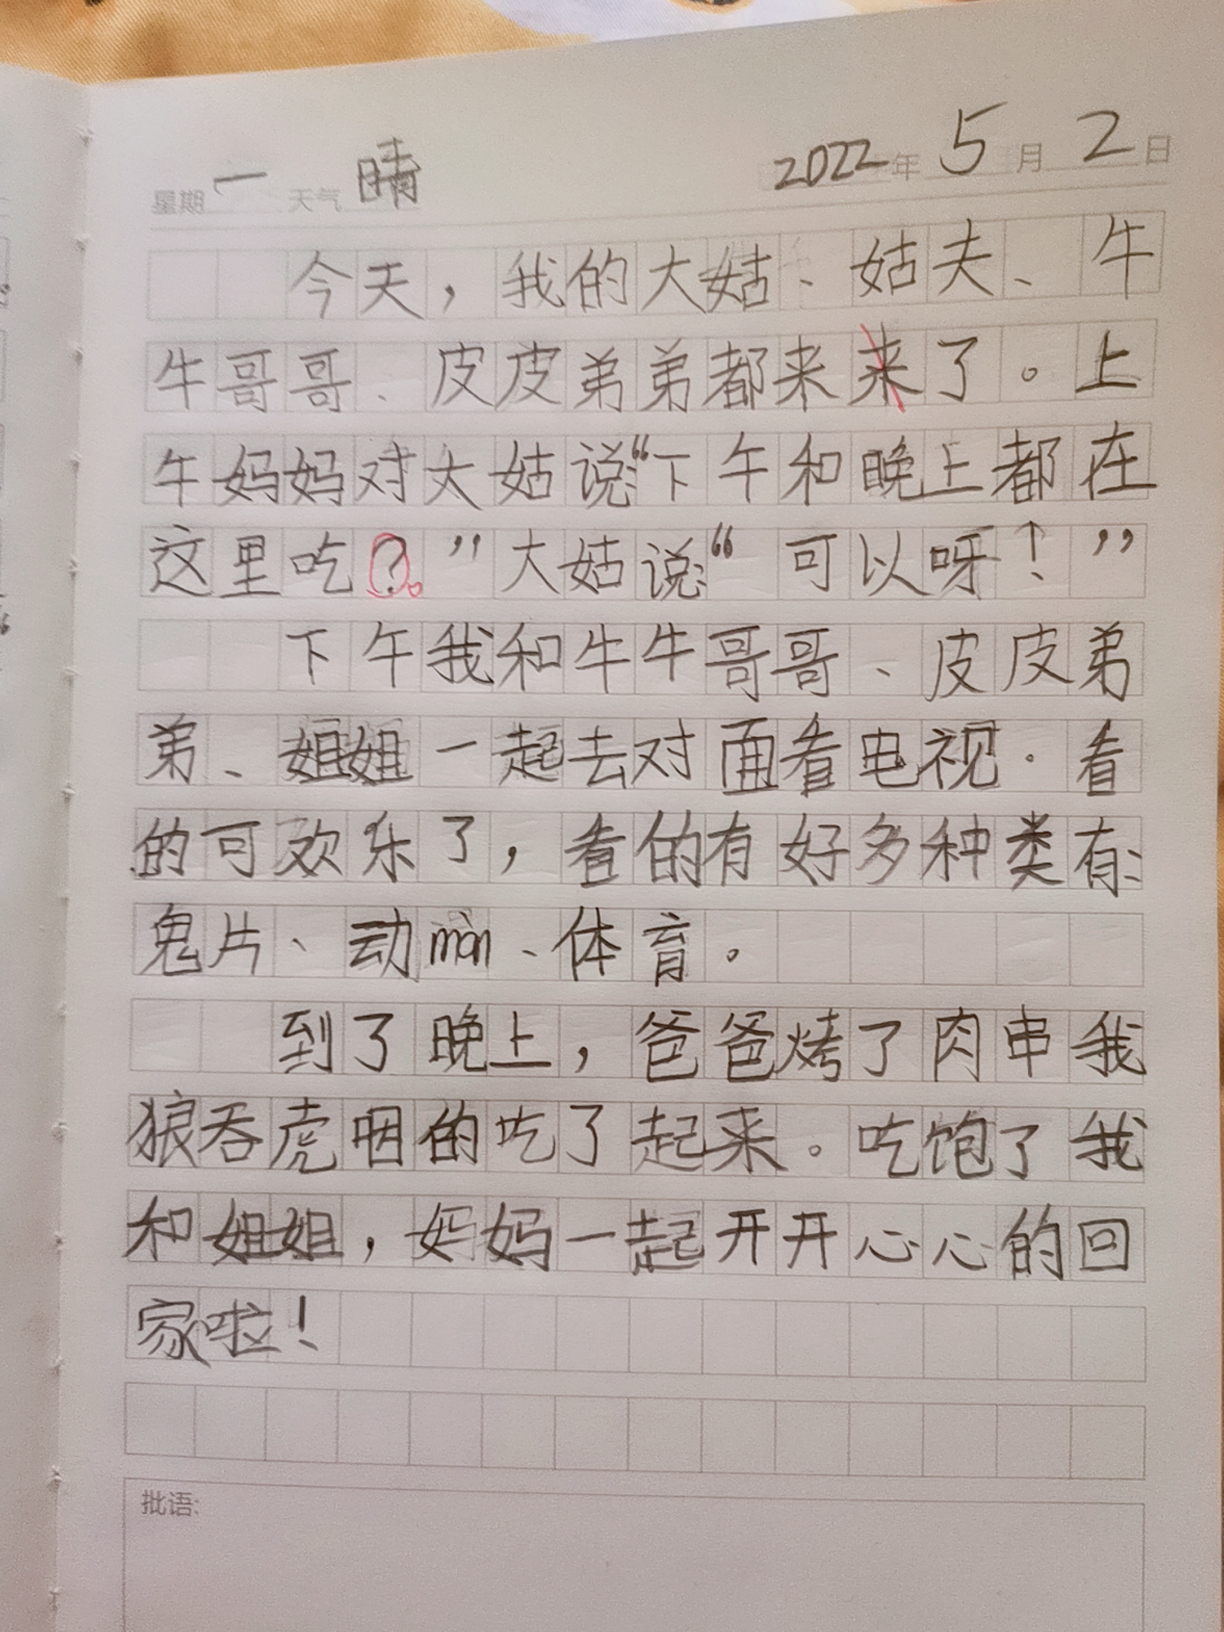 星期一 天气 晴 2022年5月2日
今天，我的大姑、姑夫、牛
牛哥哥、皮皮弟弟都来来了。上
午妈妈对大姑说:“下午和晚上都在
这里吃?。”大姑说:“可以呀！”
下午我和牛牛哥哥、皮皮弟
弟、姐姐一起去对面看电视.看
的可欢乐了，看的有好多种类有:
鬼片、动màn、体育。
到了晚上，爸爸烤了肉串我
狼吞虎咽的吃了起来。吃饱了我
和姐姐，妈妈一起开开心心的回
家啦！
批语: